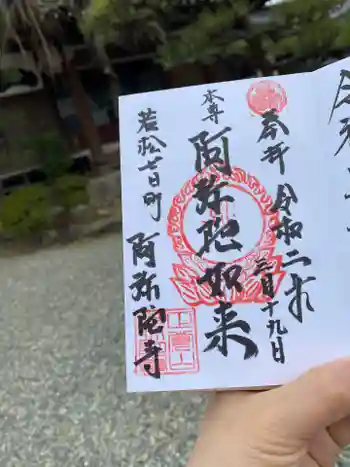 奉拝 令和二年三月十九日
本尊 阿弥陀如来
若松七日町 阿弥陀寺